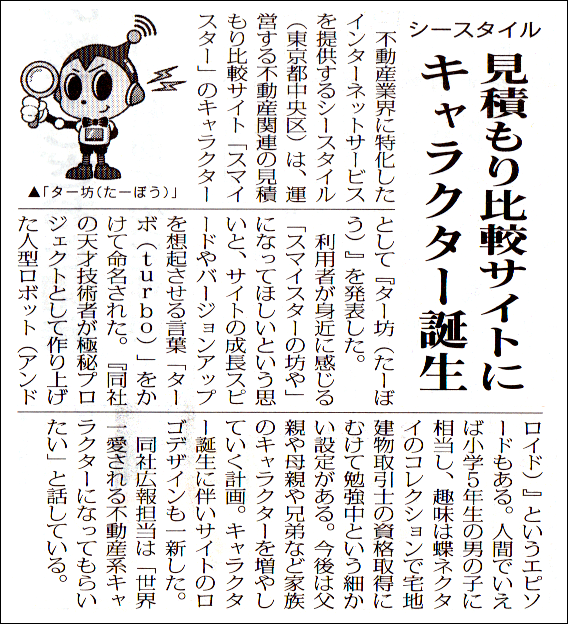 シースタイル
見積もり比較サイトに
キャラクター誕生
▲「ター坊(たーぼう)」
不動産業界に特化した
インターネットサービス
を提供するシースタイル
(東京都中央区)は、運
営する不動産関連の見積
もり比較サイト「スマイ
スター」のキャラクター
として『ター坊(たーぼ
う)』を発表した。
利用者が身近に感じる
「スマイスターの坊や」
になってほしいという思
いと、サイトの成長スピ
ードやバージョンアップ
を想起させる言葉「ター
ボ(turbo)」をか
けて命名された。『同社
の天才技術者が極秘プロ
ジェクトとして作り上げ
た人型ロボット(アンド
ロイド)』というエピソ
ードもある。人間でいえ
ば小学5年生の男の子に
相当し、趣味は蝶ネクタ
イのコレクションで宅地
建物取引士の資格取得に
むけて勉強中という細か
い設定がある。今後は父
親や母親や兄弟など家族
のキャラクターを増やし
ていく計画。キャラクタ
ー誕生に伴いサイトのロ
ゴデザインも一新した。
同社広報担当は「世界
一愛される不動産系キャ
ラクターになってもらい
たい」と話している。